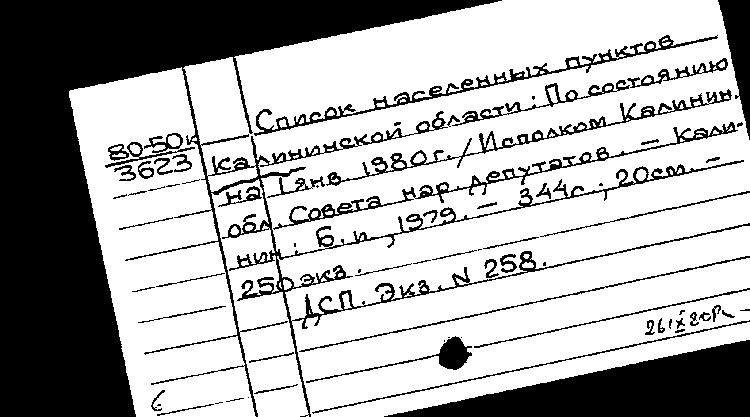 80-50к
3623
Список населенных пунктов
Калининской области: По состоянию
на 1 янв 1980 г. / Исполком Калинин.
обл. Совета нар. депутатов. — Кали-
нин: Б. и, 1979. — 344 с.; 20 см. —
250 экз.
ДСП. Экз. N 258.
б